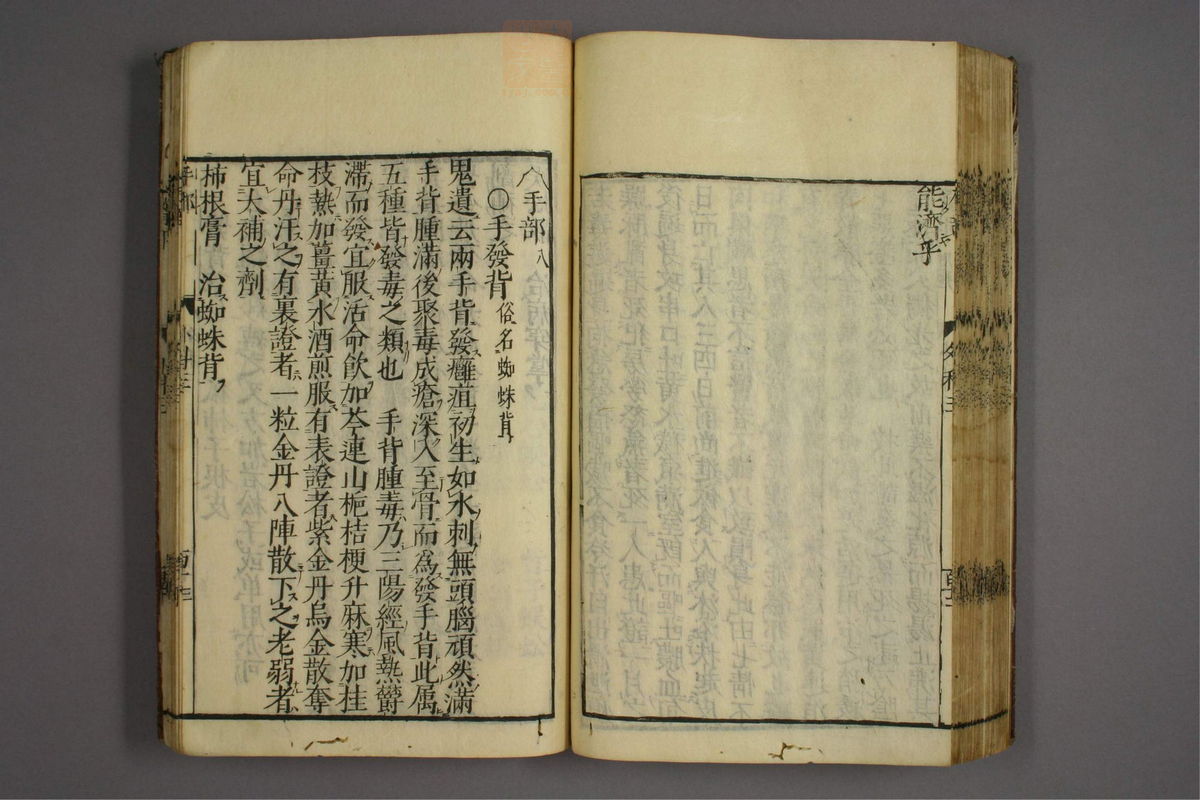 能濟乎
手部 八
○手發背 俗名蜘蛛背
鬼遺云兩手背發癰疽初生如水刺無頭腦頑然滿
手背腫滿後聚毒成瘡深入至骨而爲發手背此属
五種皆發毒之類也 手背腫毒乃三陽經風熱欝
滯而發宜服活命飲加芩連山梔桔梗升麻寒加挂
枝熱加薑黃水酒煎服有表證者紫金丹烏金散奪
命丹汗之有裏證者一粒金丹八陣散下之老弱者
宜大補之劑
柿根膏 治蜘蛛背
手部